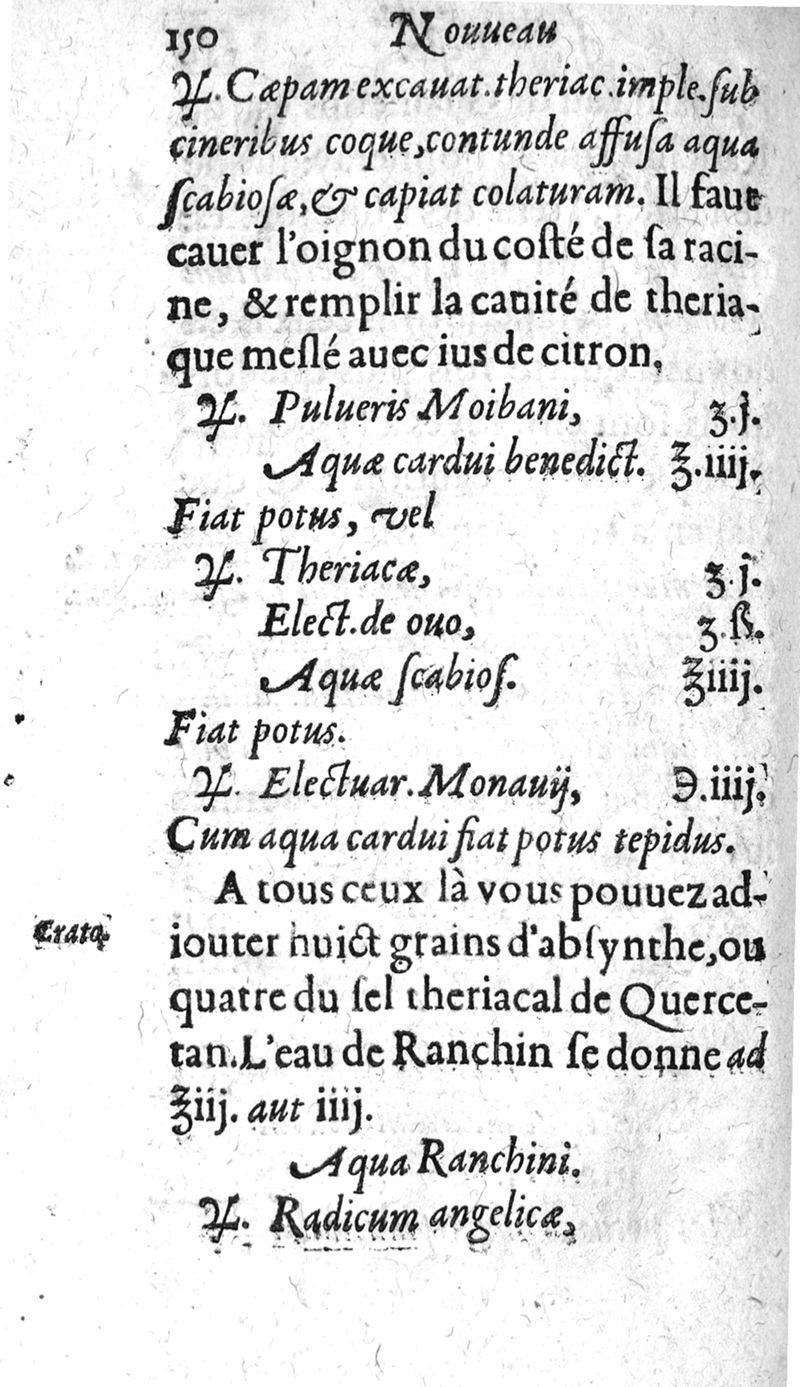 150 Nouueau
♃. Cæpam excauat. theriac. imple. ſub
cineribus coque, contunde affuſa aqua
ſcabioſæ, & capiat colaturam. Il faut
cauer l'oignon du coſté de ſa raci-
ne, & remplir la cauité de theria-
que meſlé auec ius de citron,
♃. Pulueris Moibani, ʒ.j.
Aquæ cardui benedict. ℥.iiij.
Fiat potus, vel
♃. Theriacæ, ʒ.j.
Elect. de ouo, ʒ.ß.
Aquæ ſcabioſ. ℥iiij.
Fiat potus.
♃. Electuar. Monauij, ℈.iiij.
Cum aqua cardui fiat potus tepidus.
A tous ceux là vous pouuez ad-
Crato.
iouter huict grains d'abſynthe, ou
quatre du ſel theriacal de Querce-
tan. L'eau de Ranchin ſe donne ad
℥iij. aut iiij.
Aqua Ranchini.
♃. Radicum angelicæ,